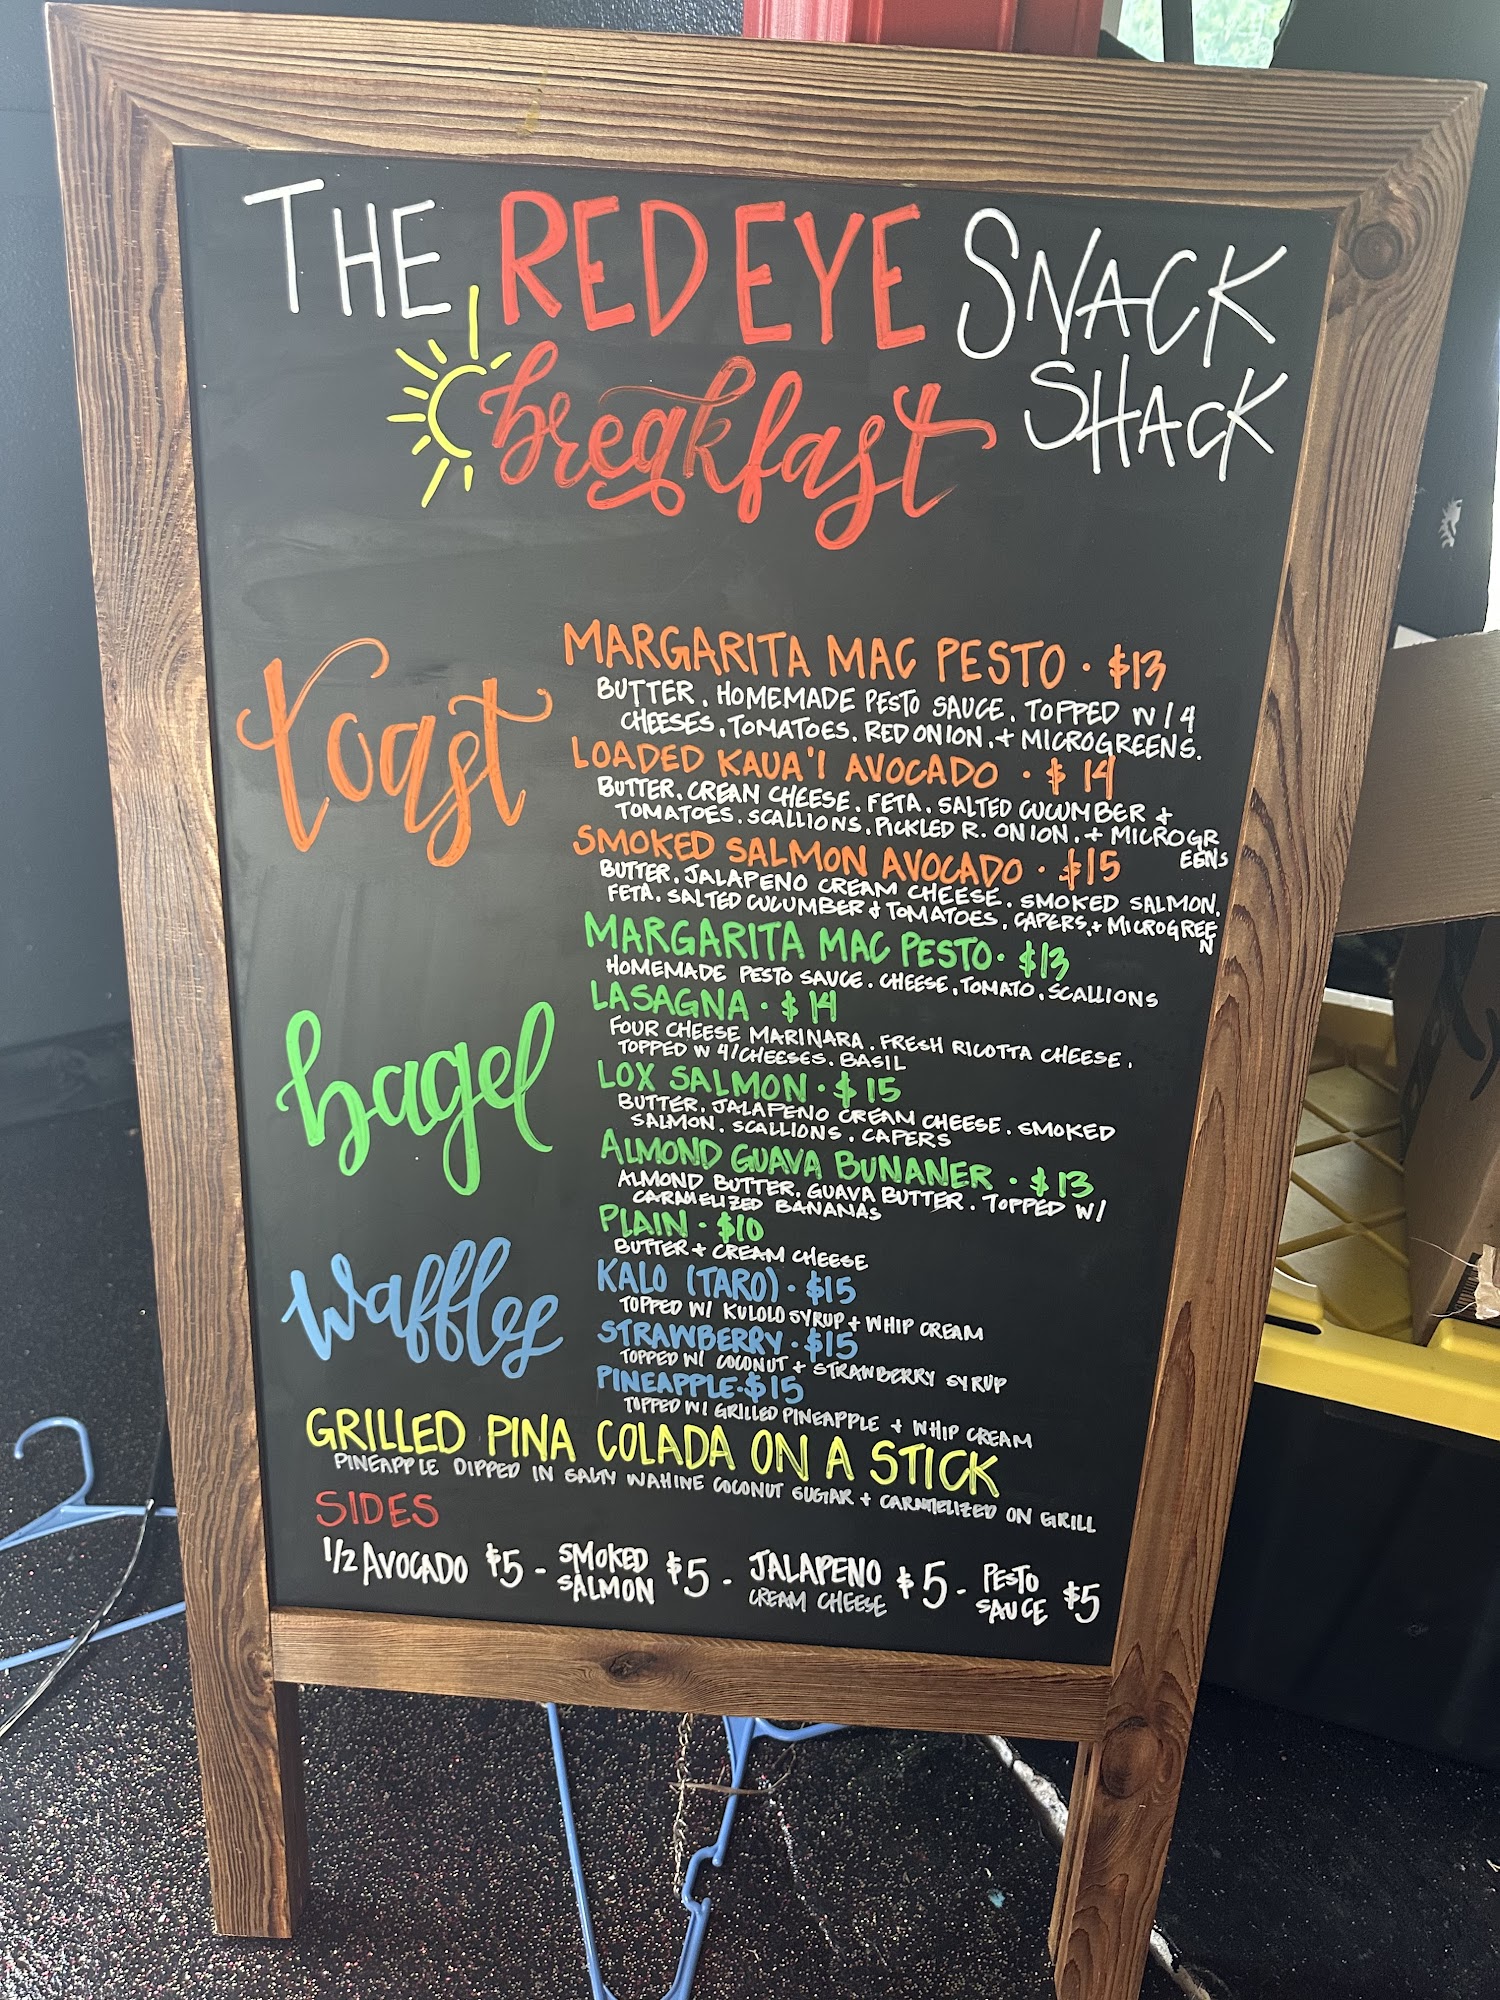 THE RED EYE SNACK
SHACK
breakfast
toast
MARGARITA MAC PESTO · $13
BUTTER. HOMEMADE PESTO SAUCE. TOPPED W/ 4
CHEESES, TOMATOES. RED ONION. + MICROGREENS.
LOADED KAUA'I AVOCADO · $14
BUTTER. CREAM CHEESE. FETA. SALTED CUCUMBER &
TOMATOES. SCALLIONS. PICKLED R. ONION. + MICROGR
EENS
SMOKED SALMON AVOCADO · $15
BUTTER. JALAPENO CREAM CHEESE. SMOKED SALMON.
FETA. SALTED CUCUMBER & TOMATOES. CAPERS. + MICROGREE
N
bagel
MARGARITA MAC PESTO · $13
HOMEMADE PESTO SAUCE. CHEESE, TOMATO. SCALLIONS
LASAGNA · $14
FOUR CHEESE MARINARA. FRESH RICOTTA CHEESE.
TOPPED W 4/CHEESES. BASIL
LOX SALMON · $15
BUTTER. JALAPENO CREAM CHEESE. SMOKED
SALMON. SCALLIONS. CAPERS
ALMOND GUAVA BUNANER · $13
ALMOND BUTTER. GUAVA BUTTER. TOPPED W/
CARAMELIZED BANANAS
PLAIN · $10
BUTTER + CREAM CHEESE
waffles
KALO (TARO) · $15
TOPPED W/ KULOLO SYRUP + WHIP CREAM
STRAWBERRY · $15
TOPPED W/ COCONUT + STRAWBERRY SYRUP
PINEAPPLE · $15
TOPPED W/ GRILLED PINEAPPLE + WHIP CREAM
GRILLED PINA COLADA ON A STICK
PINEAPPLE DIPPED IN SALTY WAHINE COCONUT SUGAR + CARAMELIZED ON GRILL
SIDES
1/2 AVOCADO $5 - SMOKED SALMON $5 - JALAPENO CREAM CHEESE $5 - PESTO SAUCE $5